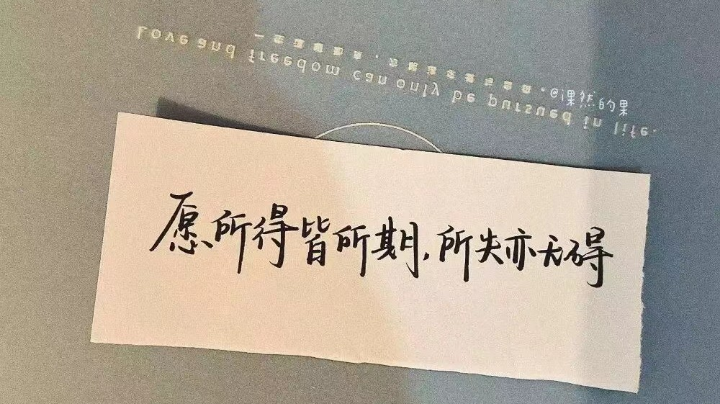 @课然的果
Love and freedom can only be pursued in life.
愿所得皆所期,所失亦无碍